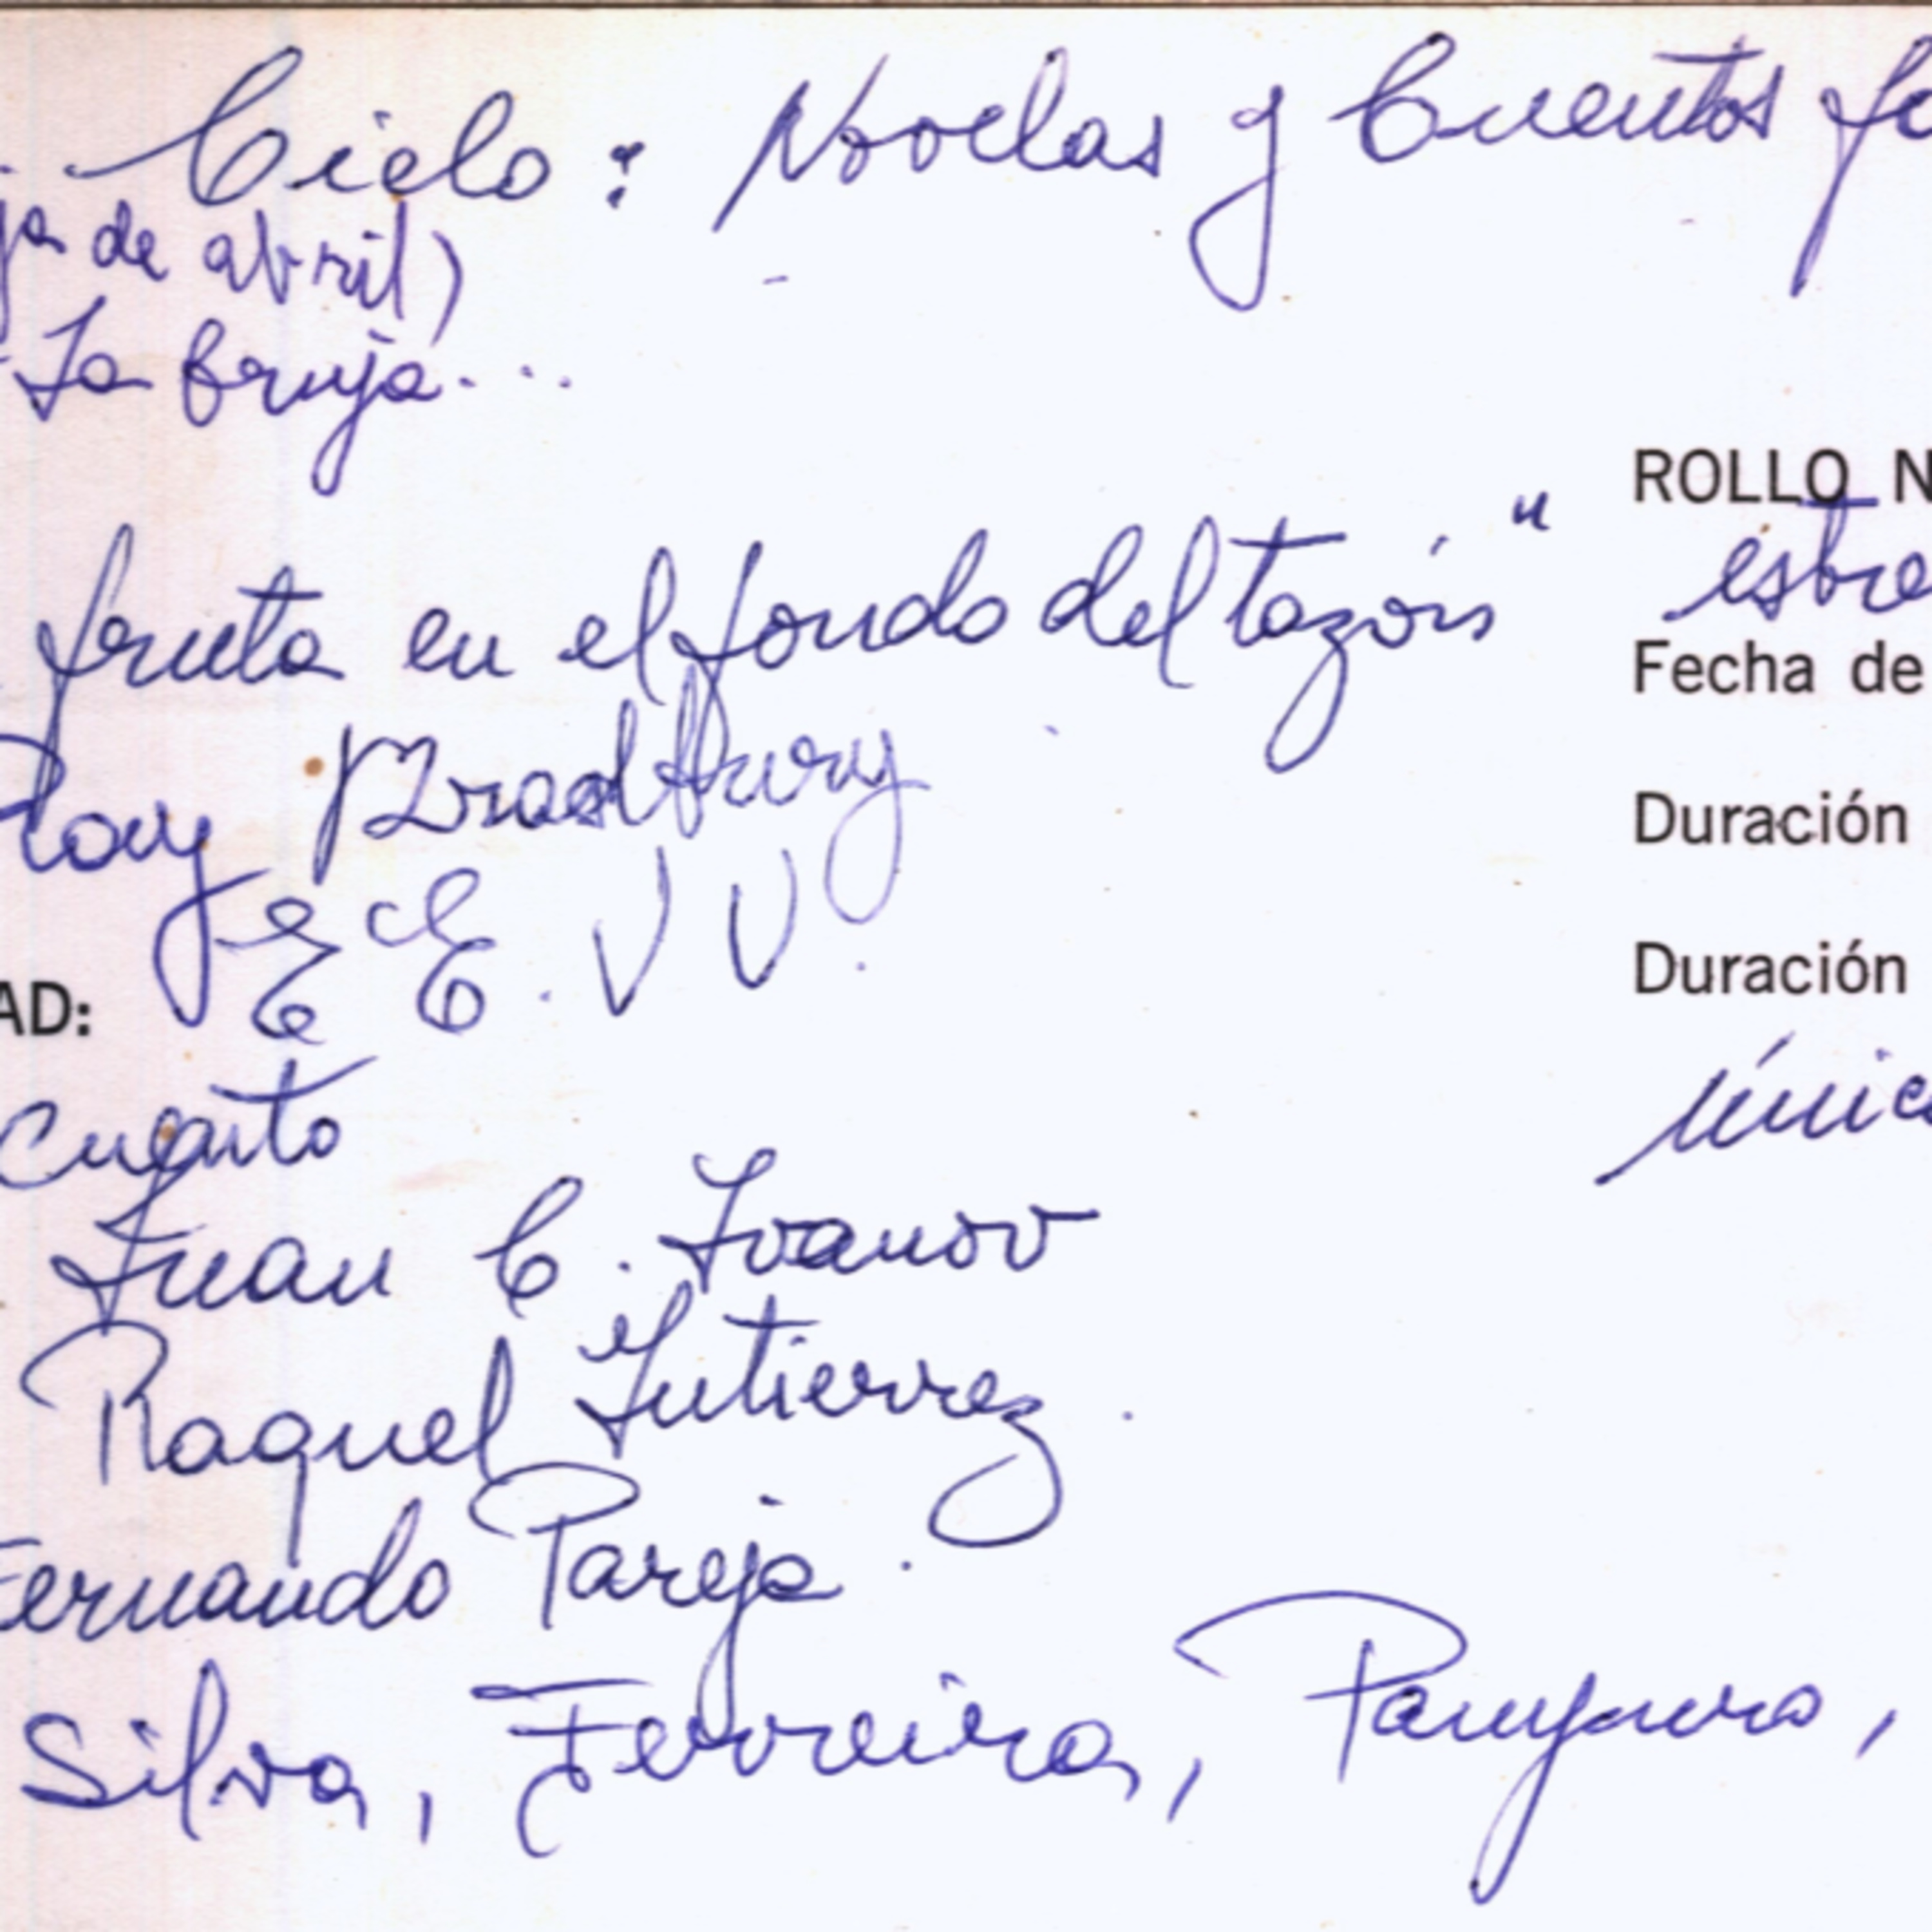 Ciclo: Novelas y Cuentos
de abril)
La bruja...
ROLLO
fruta en el fondo del tazón"
Fecha de
Ray Bradbury
Duración
EE. UU.
Duración
AD:
Cuento
Juan C. Ivanov
Raquel Gutierrez.
Fernando Pareja.
Silva, Ferreira, Pampuro,